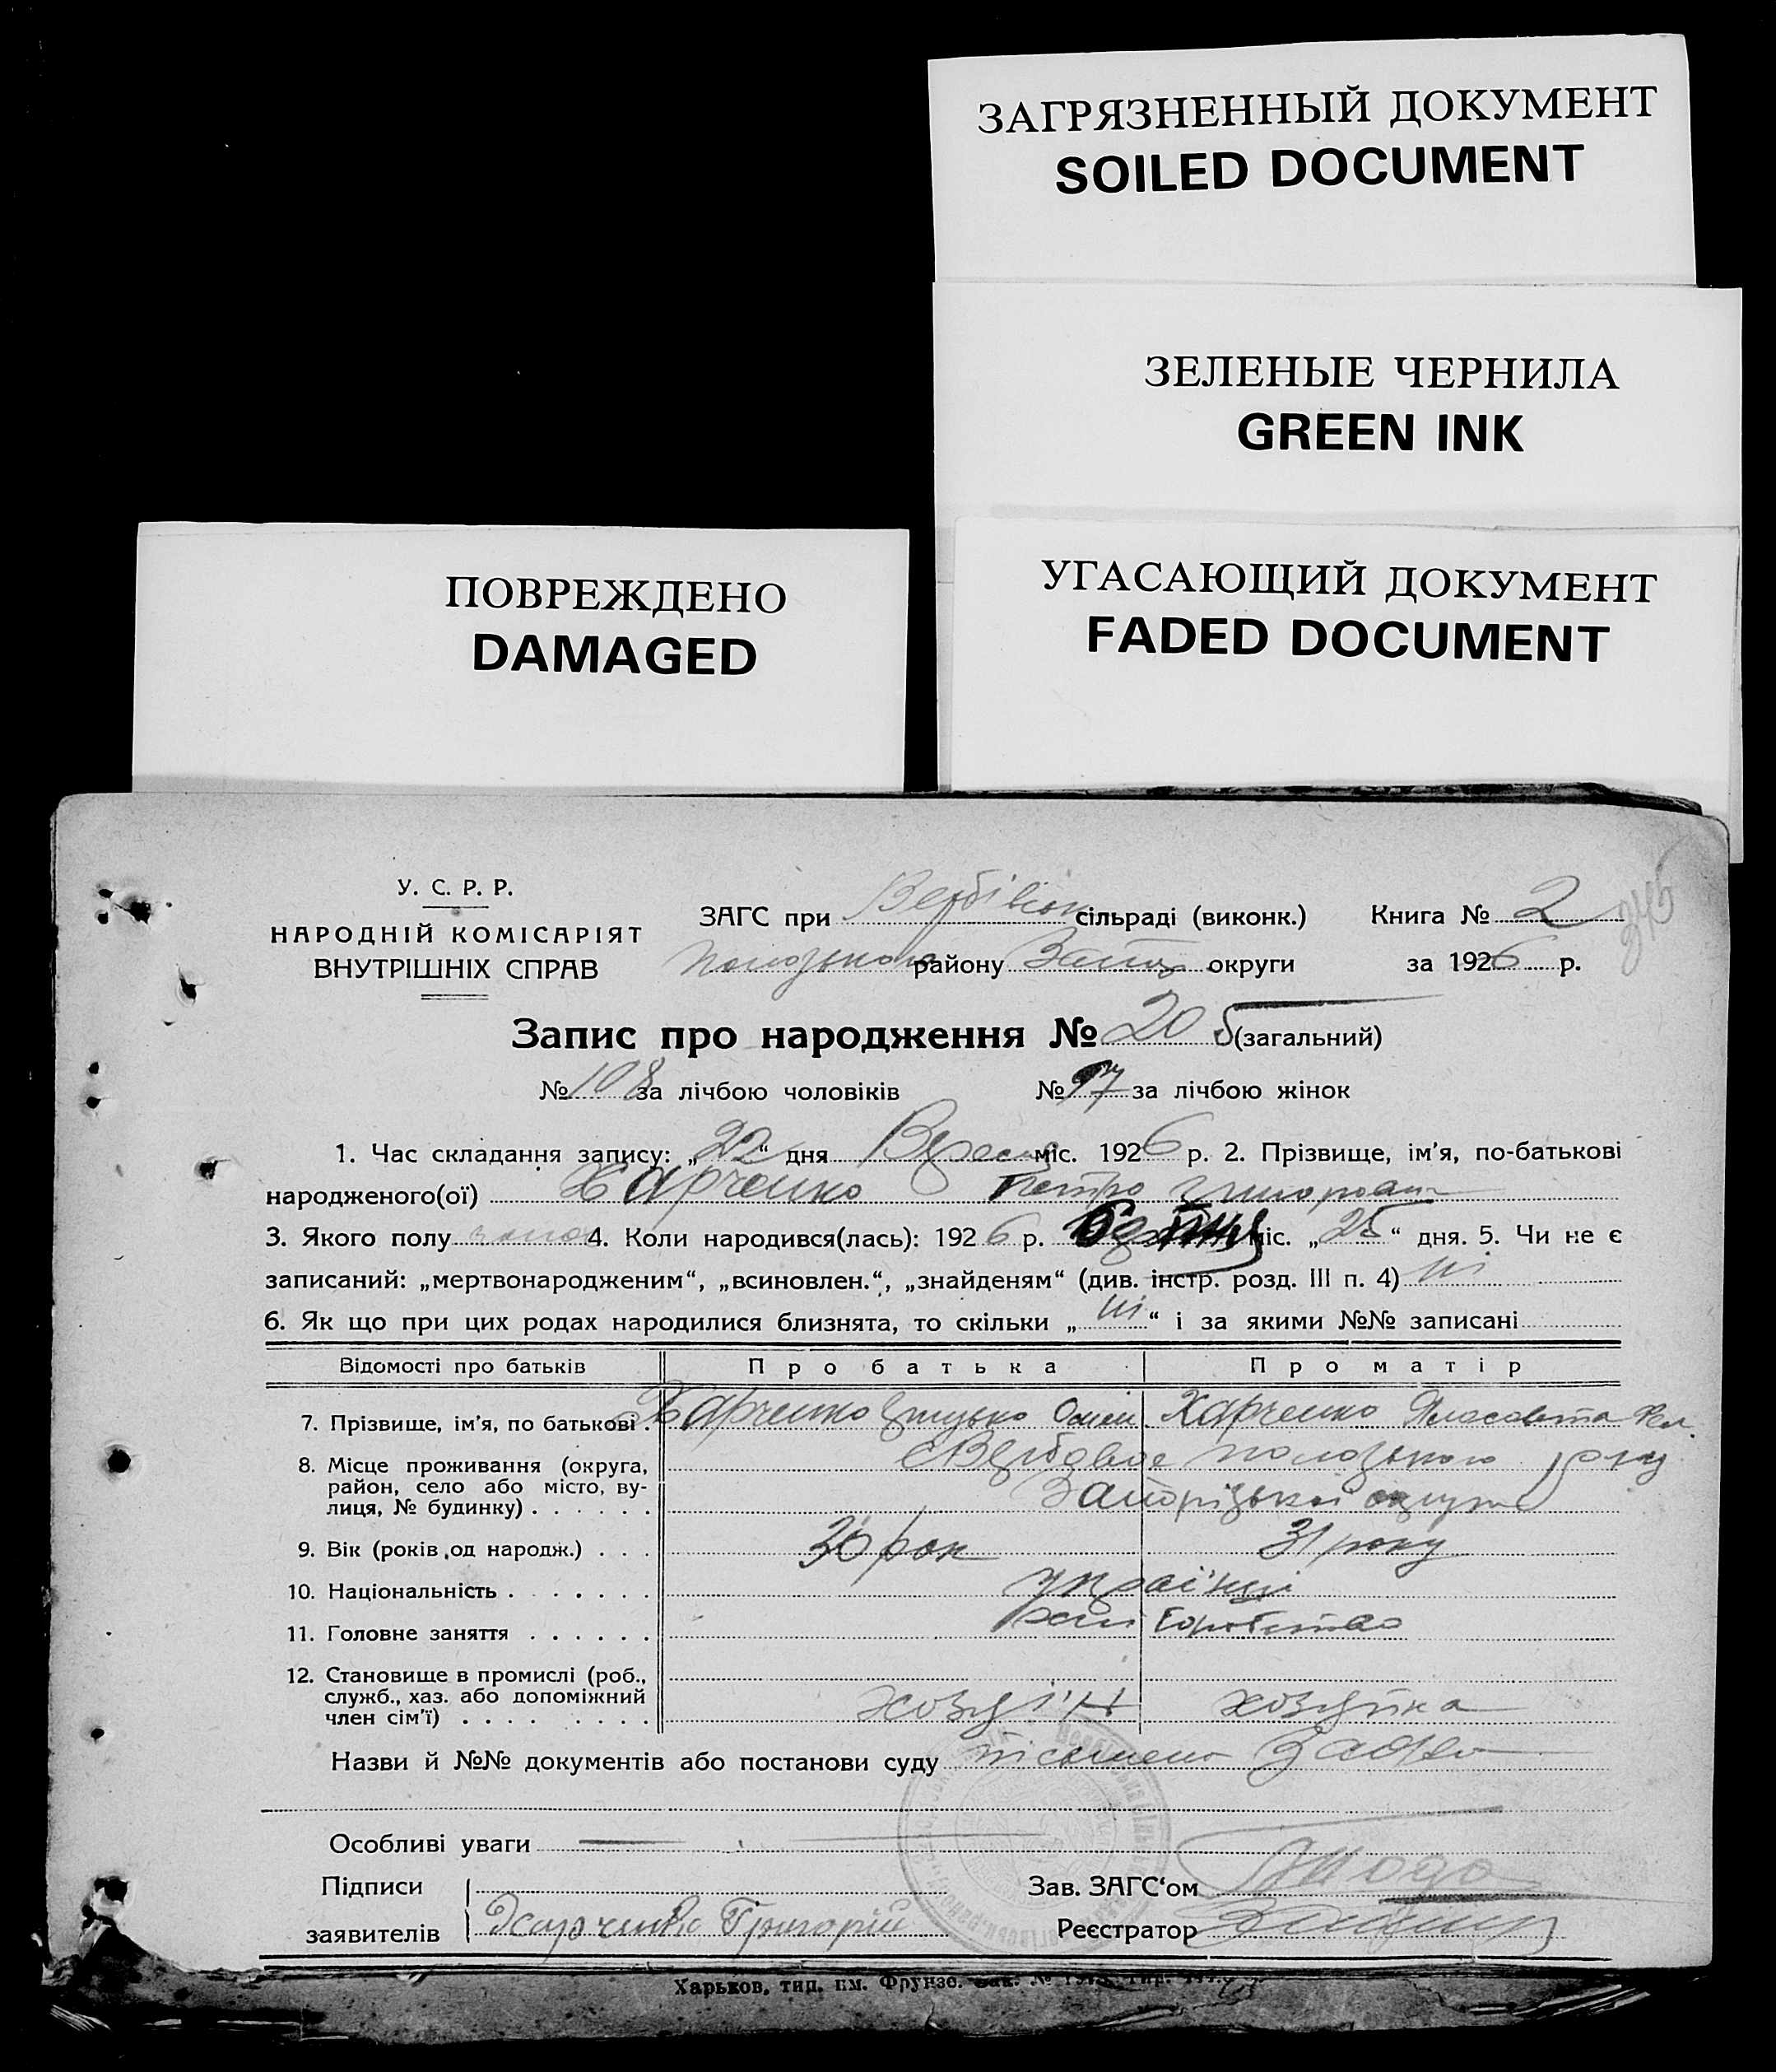 ЗАГРЯЗНЕННЫЙ ДОКУМЕНТ
SOILED DOCUMENT
ЗЕЛЕНЫЕ ЧЕРНИЛА
GREEN INK
УГАСАЮЩИЙ ДОКУМЕНТ
FADED DOCUMENT
ПОВРЕЖДЕНО
DAMAGED
У. С. Р. Р.
НАРОДНІЙ КОМІСАРІЯТ
ВНУТРІШНІХ СПРАВ
ЗАГС при сільраді (виконк.) Книга № 2
району округи за 1926 р.
345
Запис про народження № 205 (загальний)
№ 108 за лічбою чоловіків № 97 за лічбою жінок
1. Час складання запису: „22“ дня міс. 1926 р. 2. Прізвище, ім'я, по-батькові
народженого(ої) Харченко Петро
3. Якого полу 4. Коли народився(лась): 1926 р. міс. „25“ дня. 5. Чи не є
записаний: „мертвонародженим“, „всиновлен.“, „знайденям“ (див. інстр. розд. III п. 4) ні
6. Як що при цих родах народилися близнята, то скільки „ні“ і за якими №№ записані
Відомості про батьків Про батька Про матір
7. Прізвище, ім'я, по батькові . Харченко Грицько Харченко
8. Місце проживання (округа, район, село або місто, вулиця, № будинку) . . . . . .
Запорізької округи
9. Вік (років од народж.) . . . 30 рок 31 року
10. Національність . . . . . . . українці
11. Головне заняття . . . . . .
12. Становище в промислі (роб., служб., хаз. або допоміжний член сім'ї) . . . . . . . . хозяїн хозяйка
Назви й №№ документів або постанови суду
Особливі уваги
Підписи Зав. ЗАГС‘ом
заявителів Харченко Григорій Реєстратор
Харьков, тип. им. Фрунзе.